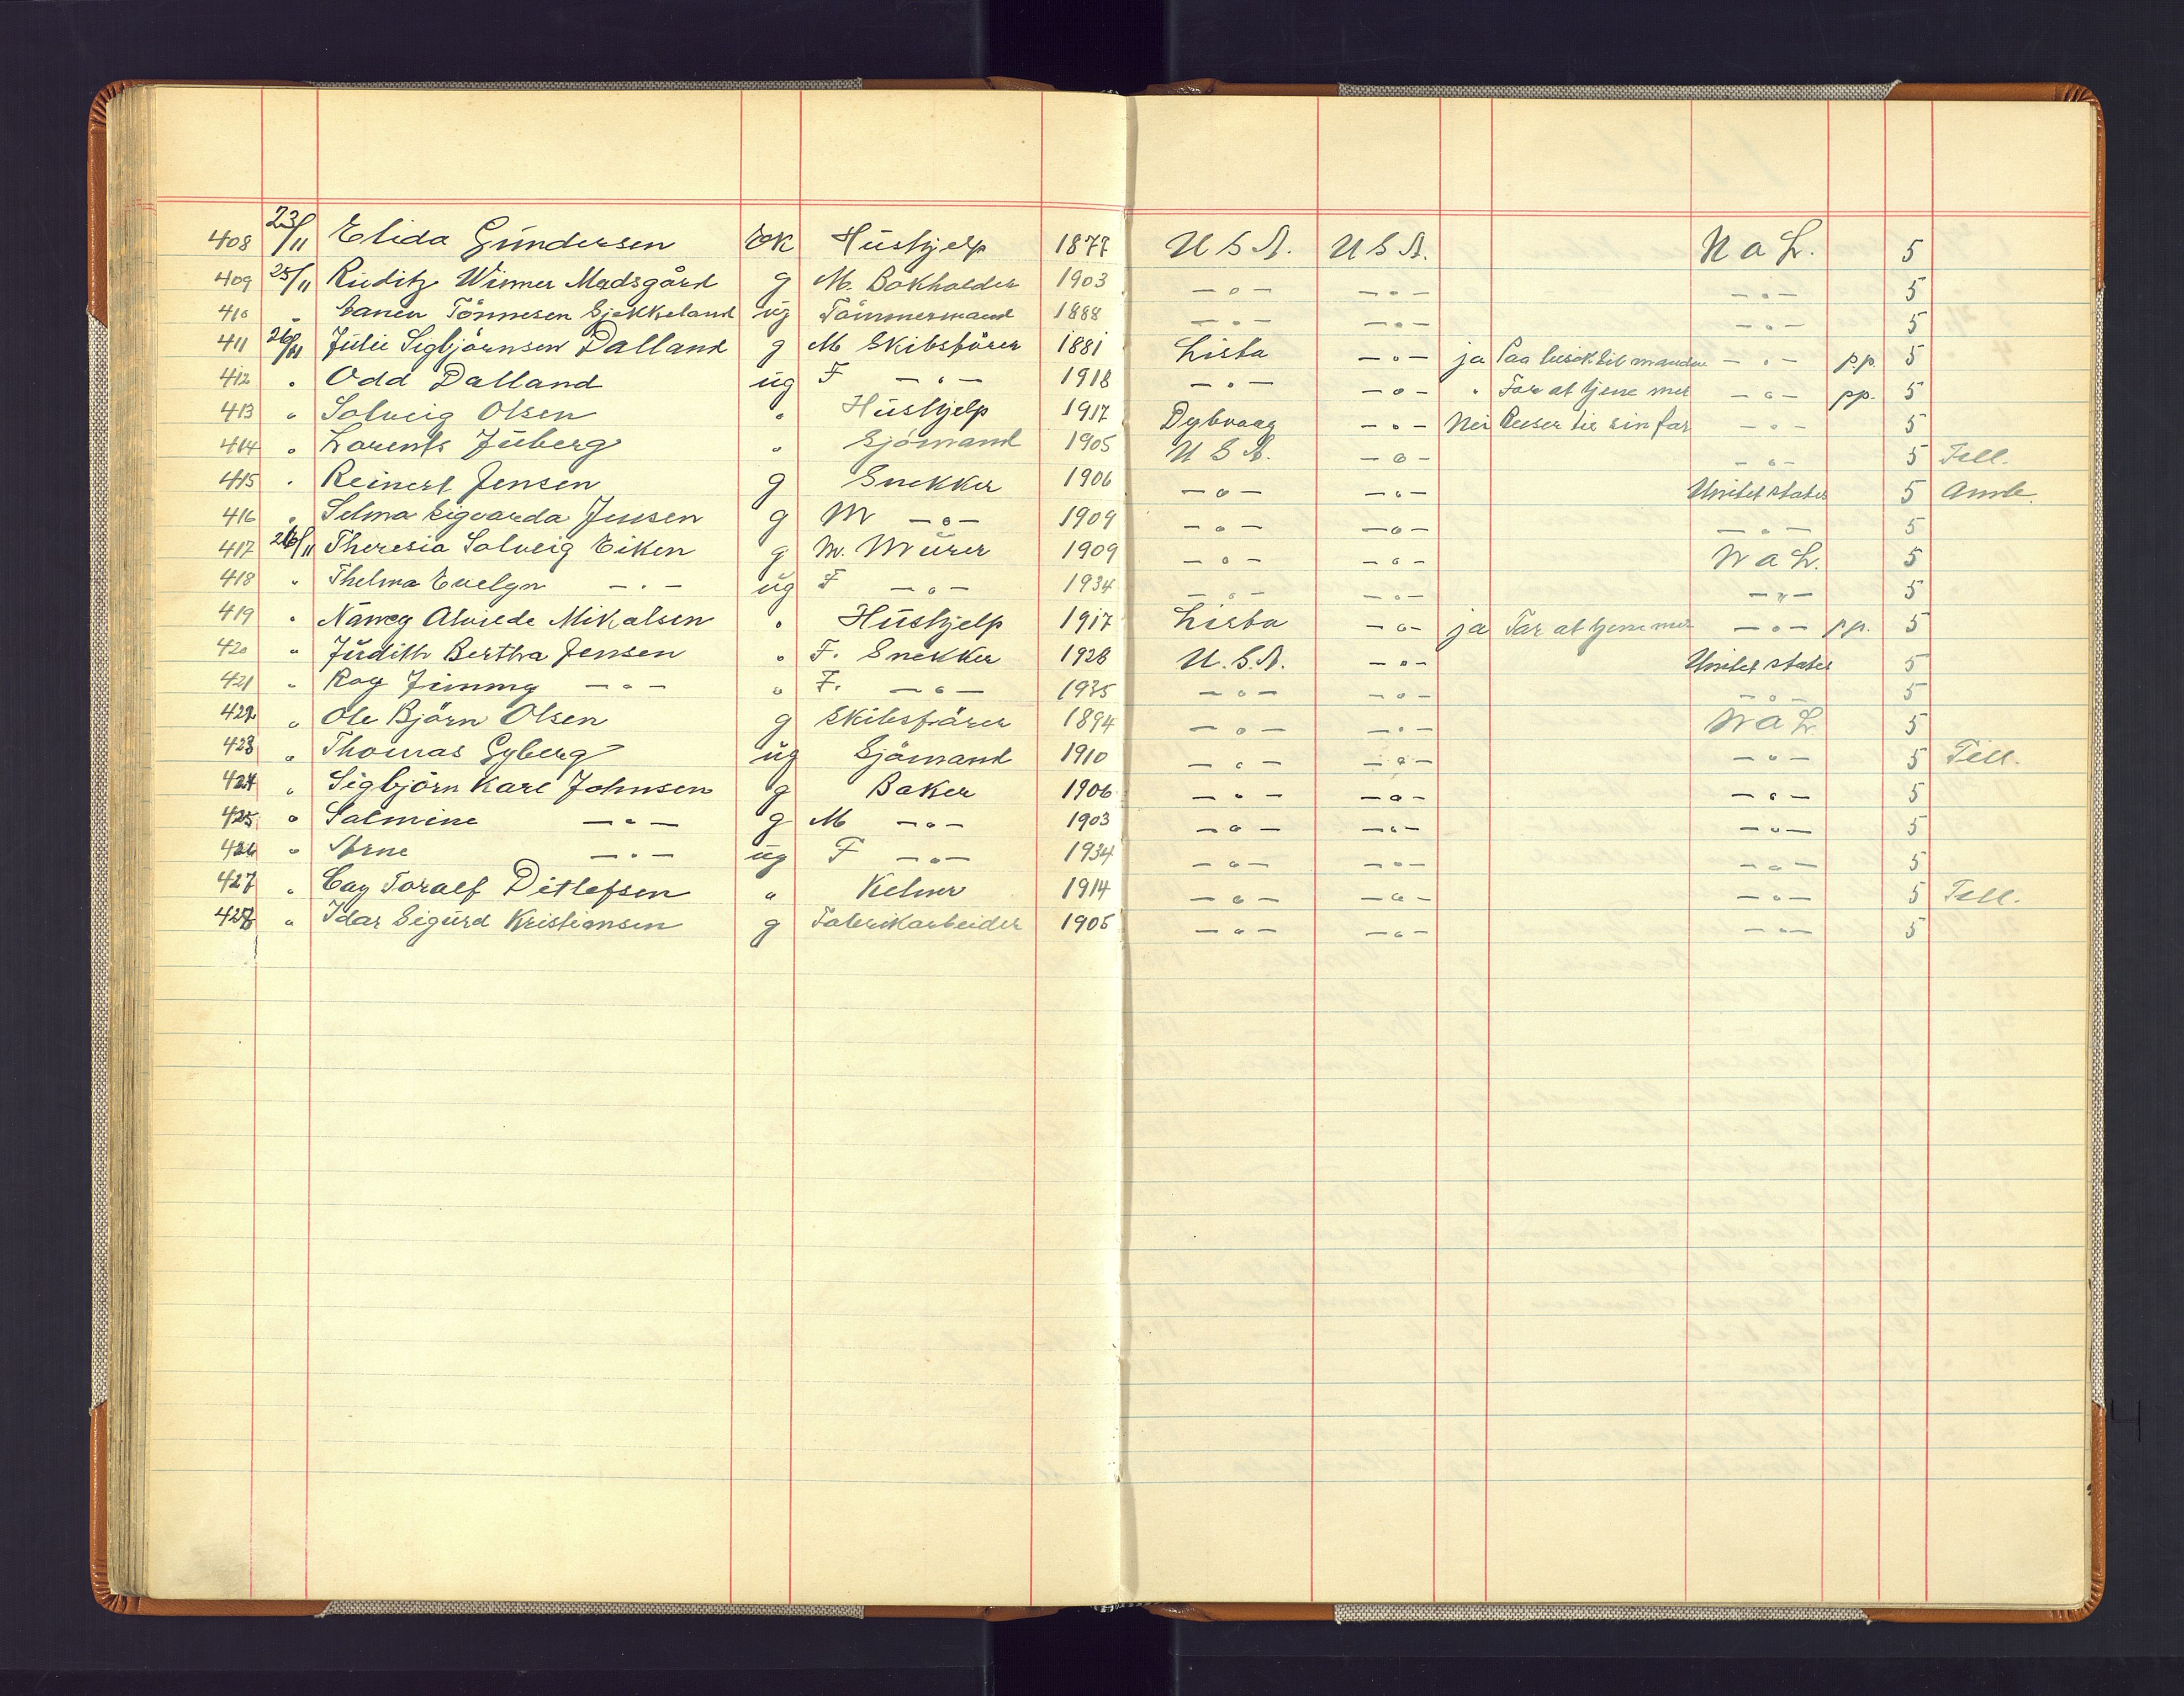 408 23/11 Elida Gundersen EK Hushjelp 1877 U S A. U S A. N a L. 5
409 25/11 Winner Madsgård g M. Bokholder 1903 —〃— —〃— —〃— 5
410 〃 Tönnesen ug Tömmermand 1888 —〃— —〃— —〃— 5
411 26/11 Julie Sigbjörnsen Dalland g M Skibsförer 1881 Lista —〃— ja Paa besök til manden —〃— p.p. 5
412 〃 Odd Dalland ug F —〃— 1918 —〃— —〃— 〃 For at tjene mer —〃— pp. 5
413 〃 Solveig Olsen 〃 Hushjelp 1917 Dybvaag —〃— Nei Reiser til sin far —〃— 5
414 〃 Lorents Juberg 〃 Sjömand 1905 U S A. —〃— —〃— 5 Tell.
415 〃 Reinert Jensen g Snekker 1906 —〃— —〃— Unitet states 5 Amb.
416 〃 Selma Sigvarda Jensen g M —〃— 1909 —〃— —〃— —〃— 5
417 26/11 Theresia Solveig Eiken g M. Murer 1909 —〃— —〃— N a L. 5
418 〃 Thelma Evelyn —〃— ug F —〃— 1934 —〃— —〃— —〃— 5
419 〃 Alvilde Mikalsen 〃 Hushjelp 1917 Lista —〃— ja For at tjene mer —〃— pp. 5
420 〃 Judith Bertha Jensen 〃 F. Snekker 1928 U.S.A. —〃— Unitet states 5
421 〃 Roy Jimmy —〃— 〃 F. —〃— 1935 —〃— —〃— —〃— 5
422 〃 Ole Björn Olsen g Skibsförer 1894 —〃— —〃— N a L 5
423 〃 Thomas Gyberg ug Sjömand 1910 —〃— —〃— —〃— 5 Tell.
424 〃 Sigbjörn Karl Johnsen g Baker 1906 —〃— —〃— —〃— 5
425 〃 Salmine —〃— g M —〃— 1903 —〃— —〃— —〃— 5
426 〃 Arne —〃— ug F —〃— 1934 —〃— —〃— —〃— 5
427 〃 Cay Toralf Ditlefsen 〃 Kelner 1914 —〃— —〃— —〃— 5 Tell.
428 〃 Idar Sigurd Kristiansen g Fabrikarbeider 1905 —〃— —〃— —〃— 5